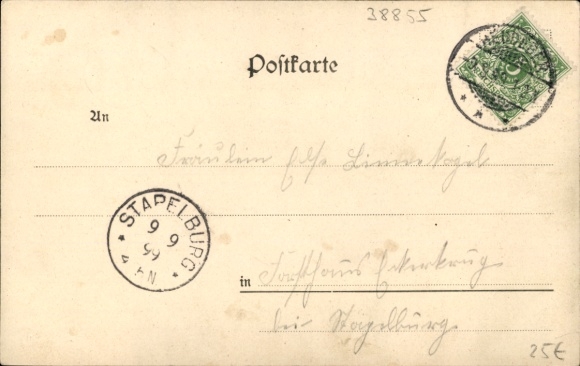 38855
Postkarte
An
Fräulein Else Linne Kogel
STAPELBURG
9 9
99
4-5 N
in Forsthaus Eckerkrug
bei Stapelburg.
25€